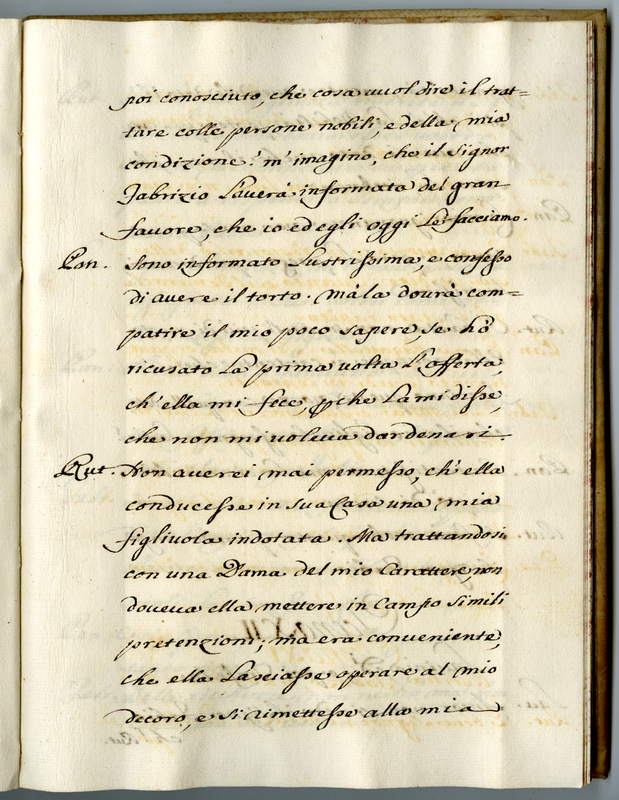 poi conosciuto, che cosa vuol dire il trat=
tare colle persone nobili, e della mia
condizione. m'imagino, che il Signor
Fabrizio L'averà informata del gran
favore, che io ed egli oggi Le facciamo.
Pan. Sono informato Lustrissima, e confesso
di avere il torto. Mà la dovrà com=
patire il mio poco sapere, se hò
ricusato La prima volta L'offerta,
ch'ella mi fece, pche La mi disse,
che non mi voleva dar denari.
Rut. Non averei mai permesso, ch'ella
conducesse in sua Casa una mia
figlivola indotata. Ma trattandosi
con una Dama del mio Carattere, non
doveva ella mettere in Campo simili
pretenzioni; ma era conveniente,
che ella Lasciasse operare al mio
decoro, e si rimettesse alla mia